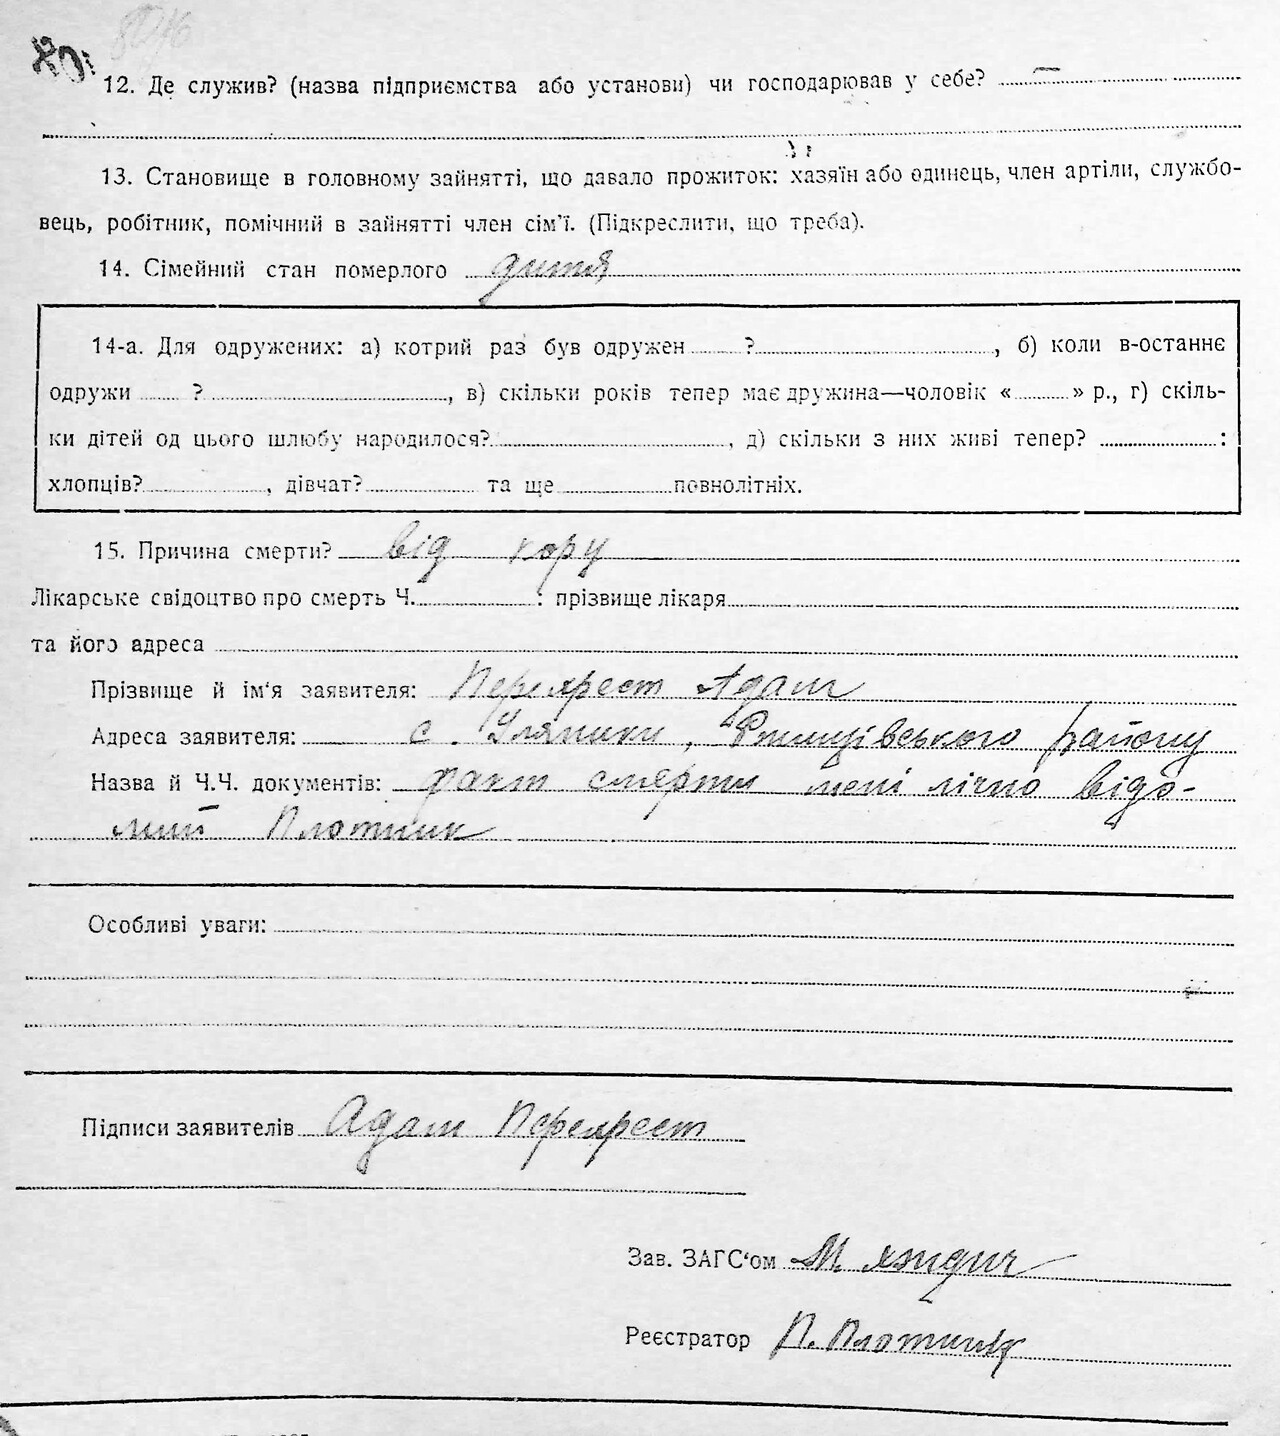 12. Де служив? (назва підприємства або установи) чи господарював у себе? —
13. Становище в головному зайнятті, що давало прожиток: хазяїн або одинець, член артіли, службо-
вець, робітник, помічний в зайнятті член сім'ї. (Підкреслити, що треба).
14. Сімейний стан померлого дитя
14-а. Для одружених: а) котрий раз був одружен ?, б) коли в-останнє
одружи ?, в) скільки років тепер має дружина—чоловік « » р., г) скіль-
ки дітей од цього шлюбу народилося?, д) скільки з них живі тепер? :
хлопців?, дівчат? та ще повнолітніх.
15. Причина смерти? від кору
Лікарське свідоцтво про смерть Ч. : прізвище лікаря
та його адреса
Прізвище й ім'я заявителя: Перехрест Адам
Адреса заявителя: с. Уляники, Ржищівського району
Назва й Ч.Ч. документів: факт смерти мені лічно відо-
мий Плотник
Особливі уваги:
Підписи заявителів Адам Перехрест
Зав. ЗАГС'ом М.
Реєстратор П. Плотник